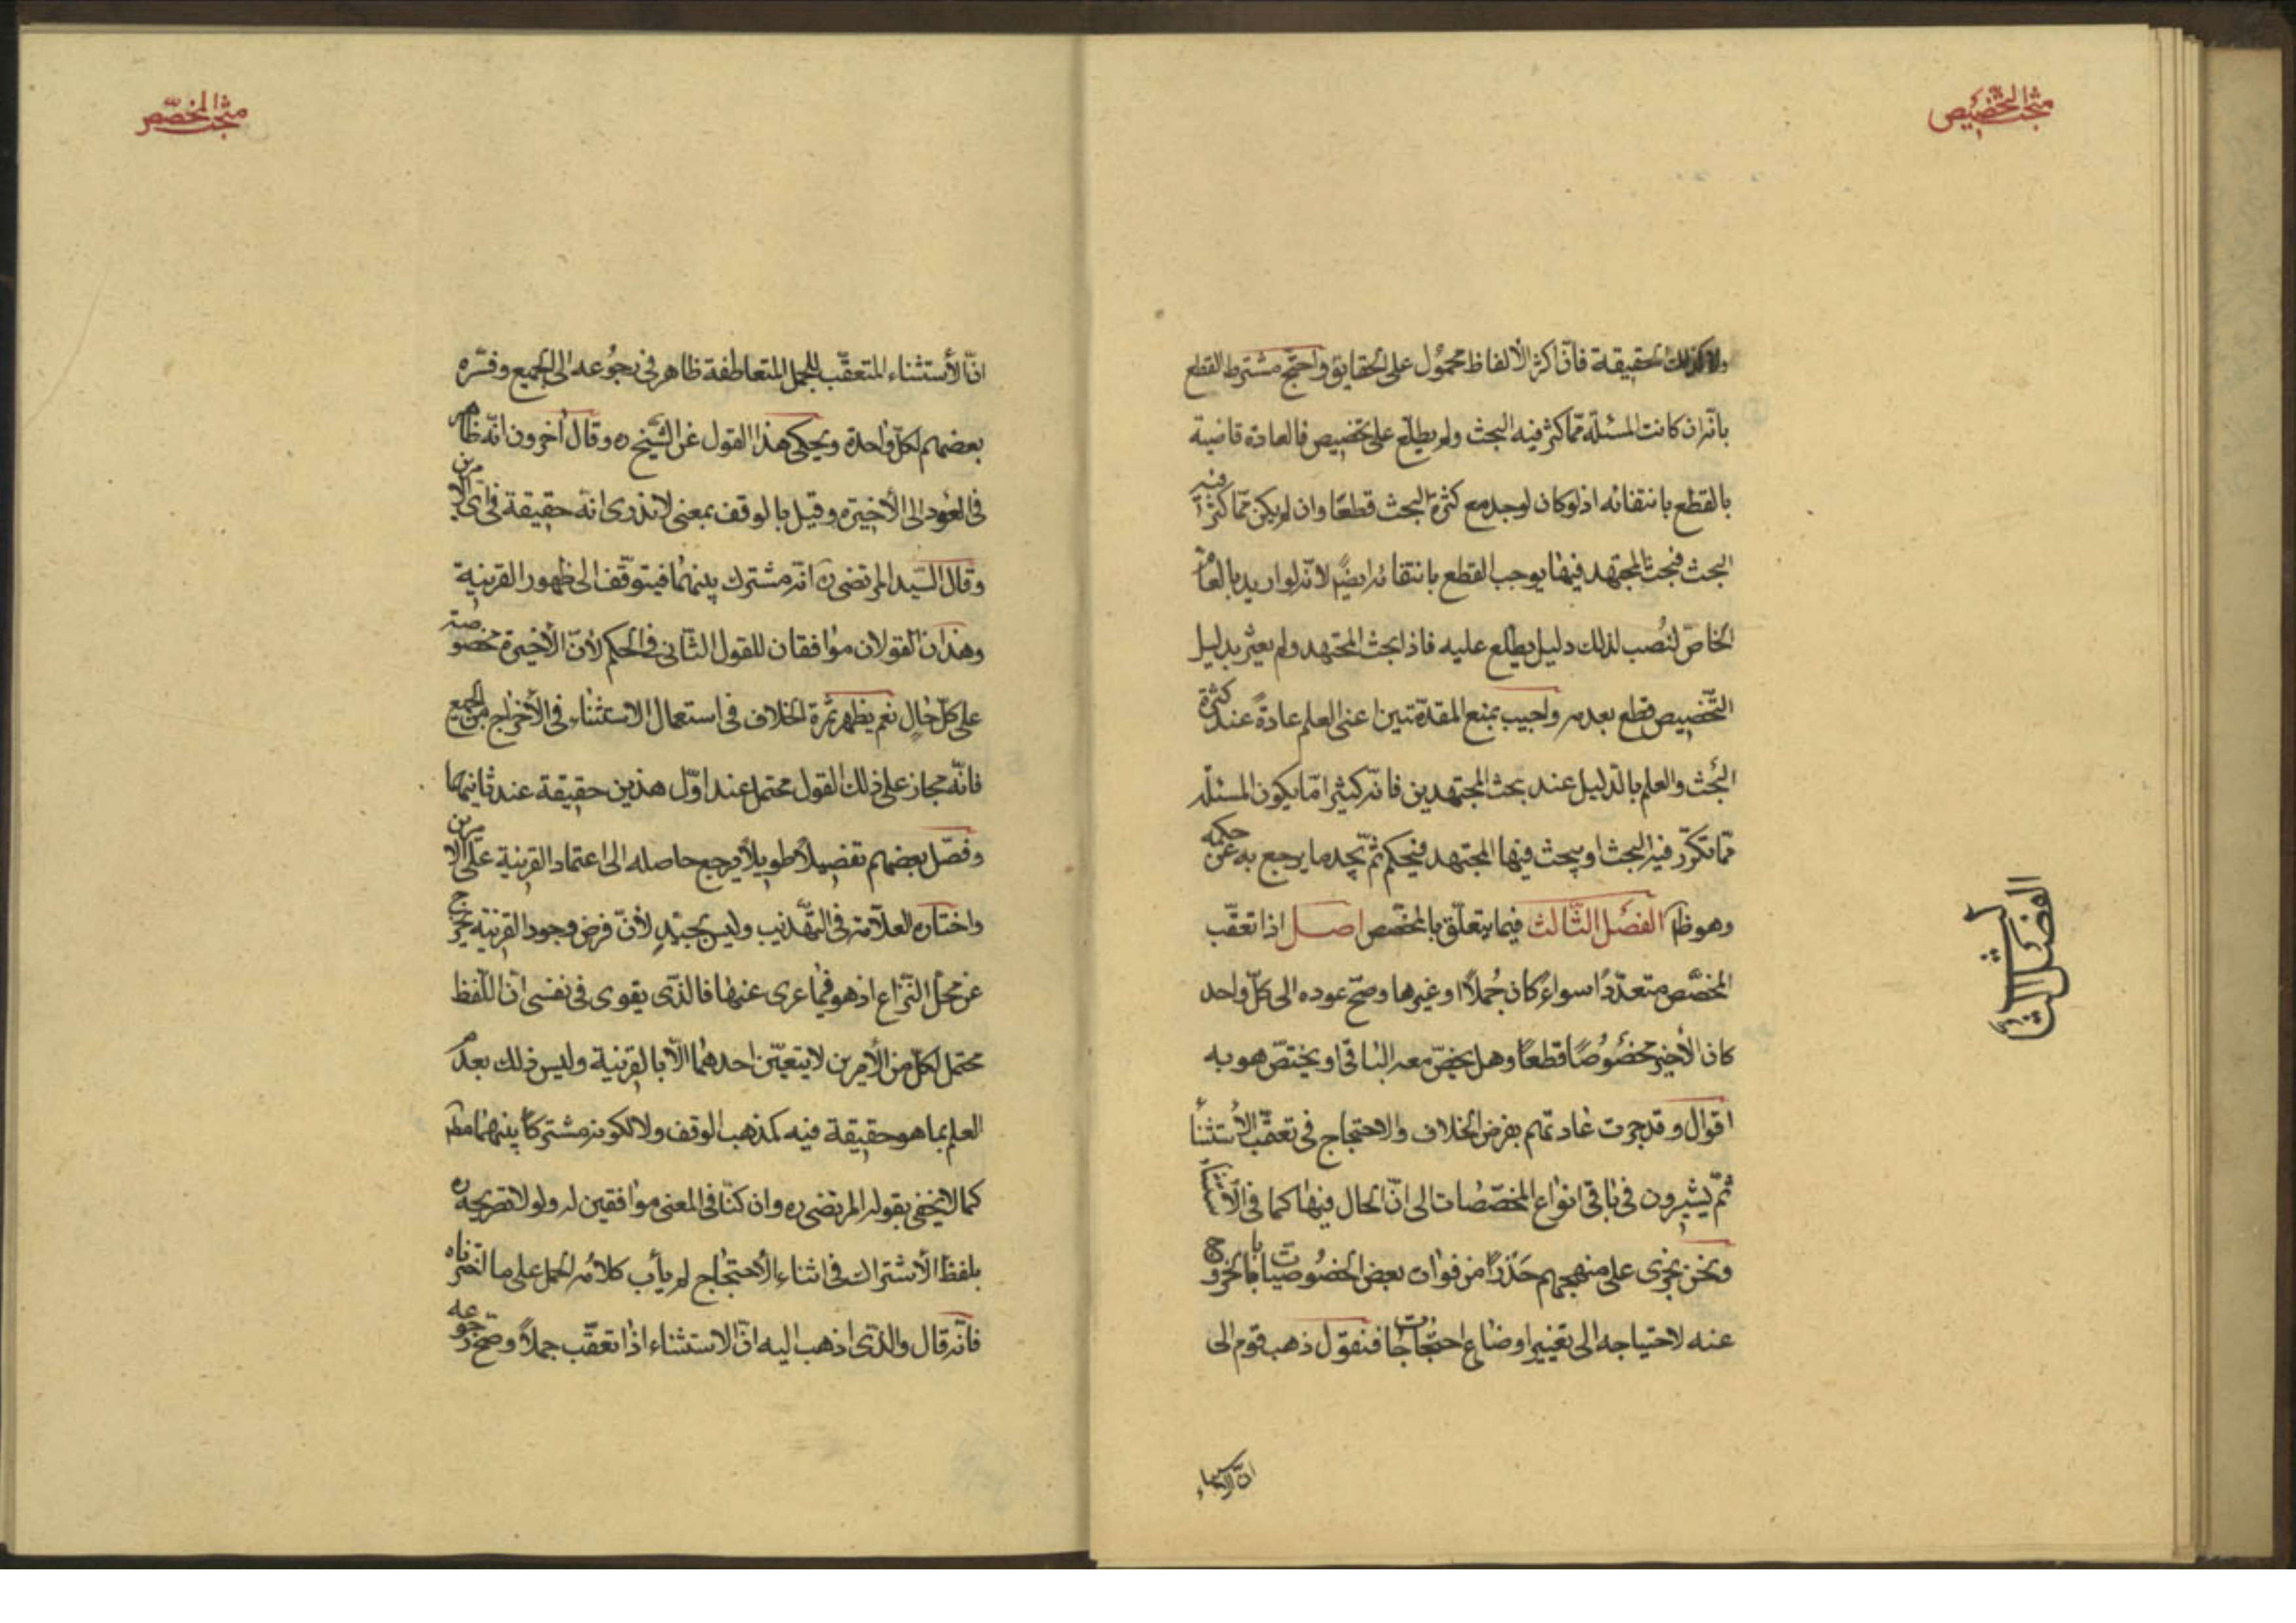 مبحث التخصيص
ولا كذلك الحقيقة فانّ اكثر الألفاظ محمول على الحقايق واحتج مشترط القطع
بانّه ان كانت المسئلة ممّا كثر فيه البحث ولم يطلع على تخصيص فالعادة قاضية
بالقطع بانتفائه اذ لو كان لوجد مع كثرة البحث قطعًا وان لم يكن ممّا كثر فيه
البحث فبحث المجتهد فيها يوجب القطع بانتفائه ايضًا لانّه لو اريد بالعام
الخاصّ لنُصب لذلك دليل يطلع عليه فاذا بحث المجتهد ولم يعثر بدليل
التّخصيص قطع بعدمه واجيب بمنع المقدّمتين اعنى العلم عادةً عند كثرة
البحث والعلم بالدّليل عند بحث المجتهدين فانّه كثيرا مّا يكون المسئله
ممّا تكرّر فيه البحث او يبحث فيها المجتهد فيحكم ثمّ يجد ما يرجع به عن حكمه
وهو ظ الفصل الثّالث فيما يتعلّق بالمخصّص اصل اذا تعقّب
المخصّص متعدّدًا سواء كان جُملًا او غيرها وصحّ عوده الى كلّ واحد
كان الأخير مخصُوصًا قطعًا وهل يخصّ معه الباقى او يختصّ هو به
اقوال وقد جرت عادتهم بفرض الخلاف والاحتجاج فى تعقّب الأستثنا
ثمّ يشيرون فى باقى انواع المخصّصات الى انّ الحال فيها كما فى الأستثنا
ونحن نجرى على منهجهم حَذَرًا من فوات بعض الخصُوصيّات بالخروج
عنه لاحتياجه الى تغيير اوضاع احتجاجات فنقول ذهب قوم الى
الفصل الثالث
مبحث المخصّص
انّ الأستثناء المتعقّب للجمل المتعاطفة ظاهر فى رجُوعه الى الجميع وفسّره
بعضهم لكلّ واحدة ويحكى هذا القول عن الشّيخ ره وقال آخرون انّه ظاهر
فى العود الى الأخيرة وقيل بالوقف بمعنى لا ندرى انّه حقيقة فى اىّ الامرين
وقال السّيد المرتضى ره انّه مشترك بينهما فيتوقّف الى ظهور القرينة
وهذان القولان موافقان للقول الثّانى فى الحكم لأنّ الأخيرة مخصوصة
على كلّ حال نعم يظهر ثمرة الخلاف فى استعمال الاستثناء فى الأخراج من الجميع
فانّه مجاز على ذلك القول محتمل عند اوّل هذين حقيقة عند ثانيهما
وفصّل بعضهم تفصيلًا طويلًا يرجع حاصله الى اعتماد القرينة على الامرين
واختاره العلّامة فى التّهذيب وليس بجيّدٍ لأنّ فرض وجود القرينة يخرج
عن محلّ النّزاع اذ هو فيما عرى عنها فالذّى يقوى فى نفسى انّ اللّفظ
محتمل لكلّ من الأمرين لا يتعيّن احدهما الّا بالقرينة وليس ذلك بعدم
العلم بما هو حقيقة فيه كمذهب الوقف ولا لكونه مشتركًا بينهما مط
كما لا يخفى بقوله المرتضى ره وان كنّا فى المعنى موافقين له ولولا تصريحه ره
بلفظ الأشتراك فى اثناء الأحتجاج لم يأب كلامُه الحمل على ما اخترناه
فانّه قال والذّى اذهب اليه انّ الاستثناء اذا تعقّب جملًا وصحّ رجوعه